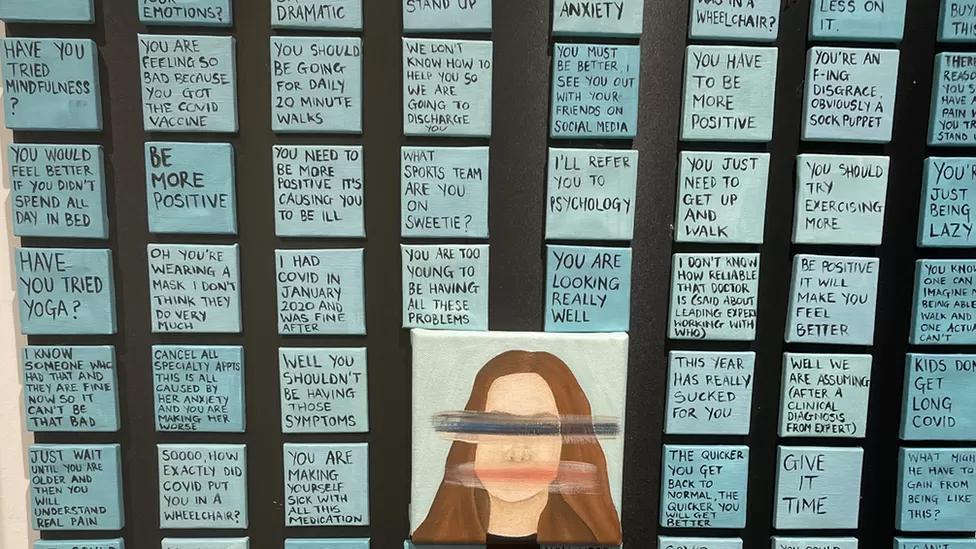 YOUR
EMOTIONS?
DRAMATIC
STAND UP
ANXIETY
WAS IN A
WHEELCHAIR?
LESS ON
IT.
BUY
THIS
HAVE YOU
TRIED
MINDFULNESS
?
YOU ARE
FEELING SO
BAD BECAUSE
YOU GOT
THE COVID
VACCINE
YOU SHOULD
BE GOING
FOR DAILY
20 MINUTE
WALKS
WE DON'T
KNOW HOW TO
HELP YOU SO
WE ARE
GOING TO
DISCHARGE
YOU
YOU MUST
BE BETTER, I
SEE YOU OUT
WITH YOUR
FRIENDS ON
SOCIAL MEDIA
YOU HAVE
TO BE
MORE
POSITIVE
YOU'RE AN
F-ING
DISGRACE,
OBVIOUSLY A
SOCK PUPPET
YOU WOULD
FEEL BETTER
IF YOU DIDN'T
SPEND ALL
DAY IN BED
BE
MORE
POSITIVE
YOU NEED TO
BE MORE
POSITIVE IT'S
CAUSING YOU
TO BE ILL
WHAT
SPORTS TEAM
ARE YOU
ON
SWEETIE?
I'LL REFER
YOU TO
PSYCHOLOGY
YOU JUST
NEED TO
GET UP
AND
WALK
YOU SHOULD
TRY
EXERCISING
MORE
JUST
BEING
LAZY
HAVE
YOU TRIED
YOGA?
OH YOU'RE
WEARING A
MASK I DON'T
THINK THEY
DO VERY
MUCH
I HAD
COVID IN
JANUARY
2020 AND
WAS FINE
AFTER
YOU ARE TOO
YOUNG TO
BE HAVING
ALL THESE
PROBLEMS
YOU ARE
LOOKING
REALLY
WELL
I DON'T KNOW
HOW RELIABLE
THAT DOCTOR
IS (SAID ABOUT
LEADING EXPERT
WORKING WITH
WHO)
BE POSITIVE
IT WILL
MAKE YOU
FEEL
BETTER
YOU KNOW
ONE CAN
IMAGINE
BEING ABLE
WALK AND
ONE ACTUA
CAN'T
I KNOW
SOMEONE WHO
HAD THAT AND
THEY ARE FINE
NOW SO IT
CAN'T BE
THAT BAD
CANCEL ALL
SPECIALTY APPTS
THIS IS ALL
CAUSED BY
HER ANXIETY
AND YOU ARE
MAKING HER
WORSE
WELL YOU
SHOULDN'T
BE HAVING
THOSE
SYMPTOMS
THIS YEAR
HAS REALLY
SUCKED
FOR YOU
WELL WE
ARE ASSUMING
(AFTER A
CLINICAL
DIAGNOSIS
FROM EXPERT)
KIDS DON
GET
LONG
COVID
JUST WAIT
UNTIL YOU ARE
OLDER AND
THEN YOU
WILL
UNDERSTAND
REAL PAIN
SOOOO, HOW
EXACTLY DID
COVID PUT
YOU IN A
WHEELCHAIR?
YOU ARE
MAKING
YOURSELF
SICK WITH
ALL THIS
MEDICATION
THE QUICKER
YOU GET
BACK TO
NORMAL, THE
QUICKER YOU
WILL GET
BETTER
GIVE
IT
TIME
WHAT MIGH
HE HAVE TO
GAIN FROM
BEING LIKE
THIS?